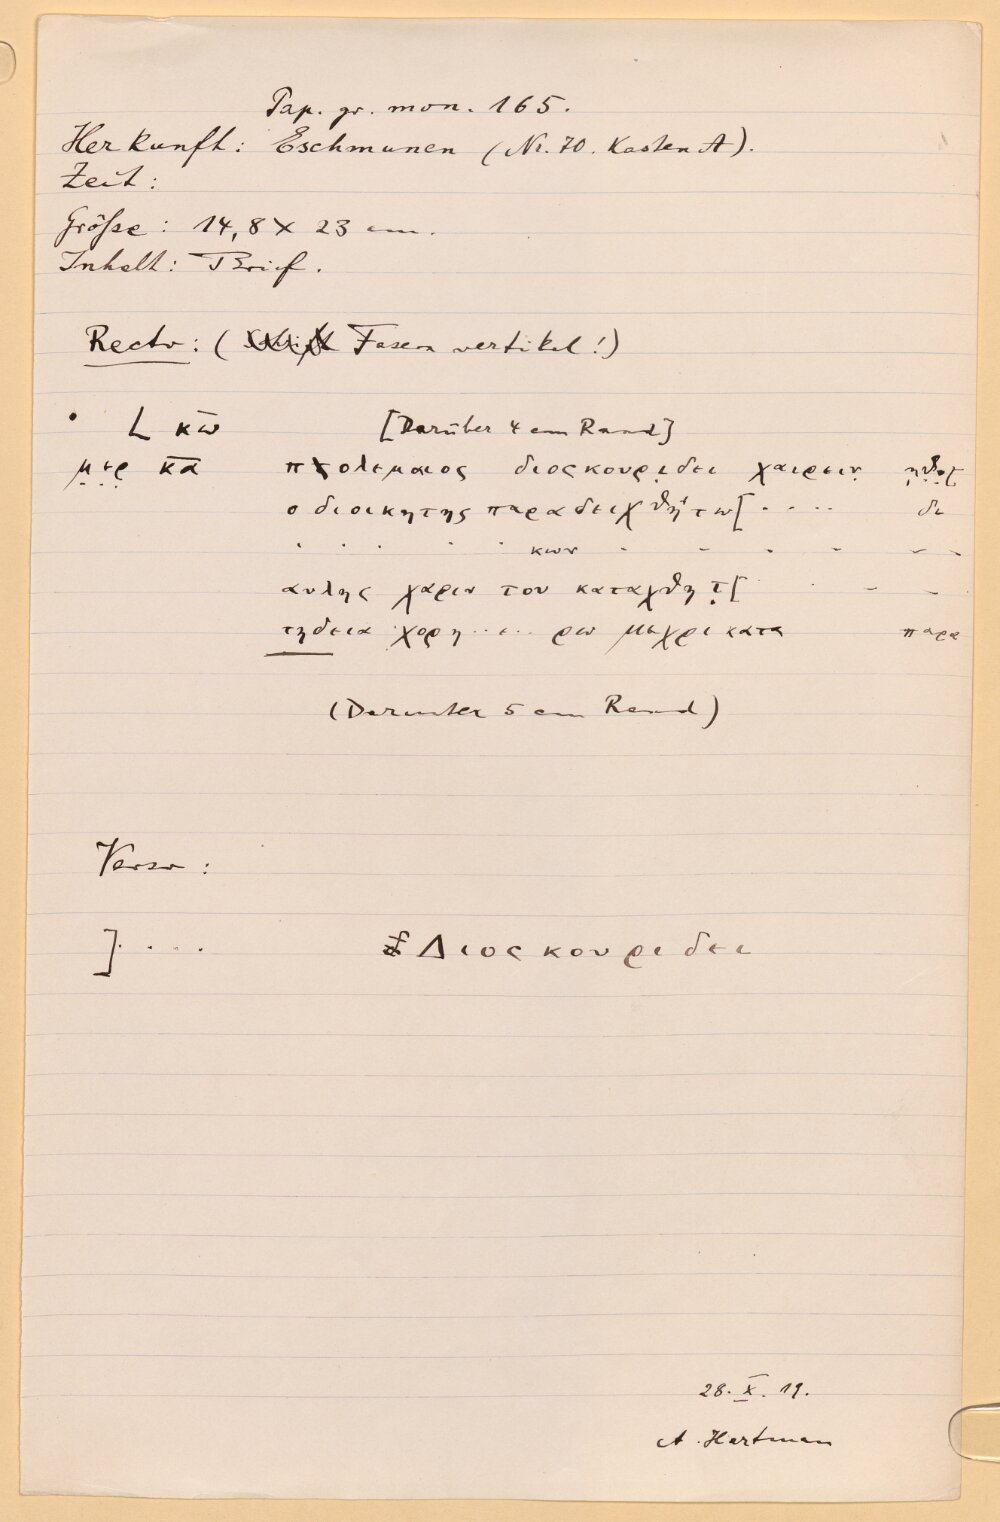 Pap. gr. mon. 165.
Herkunft: Eschmunen (Nr. 70. Kasten A).
Zeit:
Größe: 14,8 X 23 cm.
Inhalt: Brief.
Recto: ( Fasern vertikal!)
L κω̅ [Darüber 4 cm Rand]
μερ κα̅ πτολεμαιος διοσκουριδει χαιρειν
ο διοικητης παραδειχθητω[ . . . . δι
. . . . . κων . - . . - -
αυλης χαριν του καταχθητ[ . - -
τηδεια χορη..ε.. ρω μεχρι κατα παρα
(Darunter 5 cm Rand)
Verso:
]. . . . Διοσκουριδει
28. X. 19.
A. Hartmann